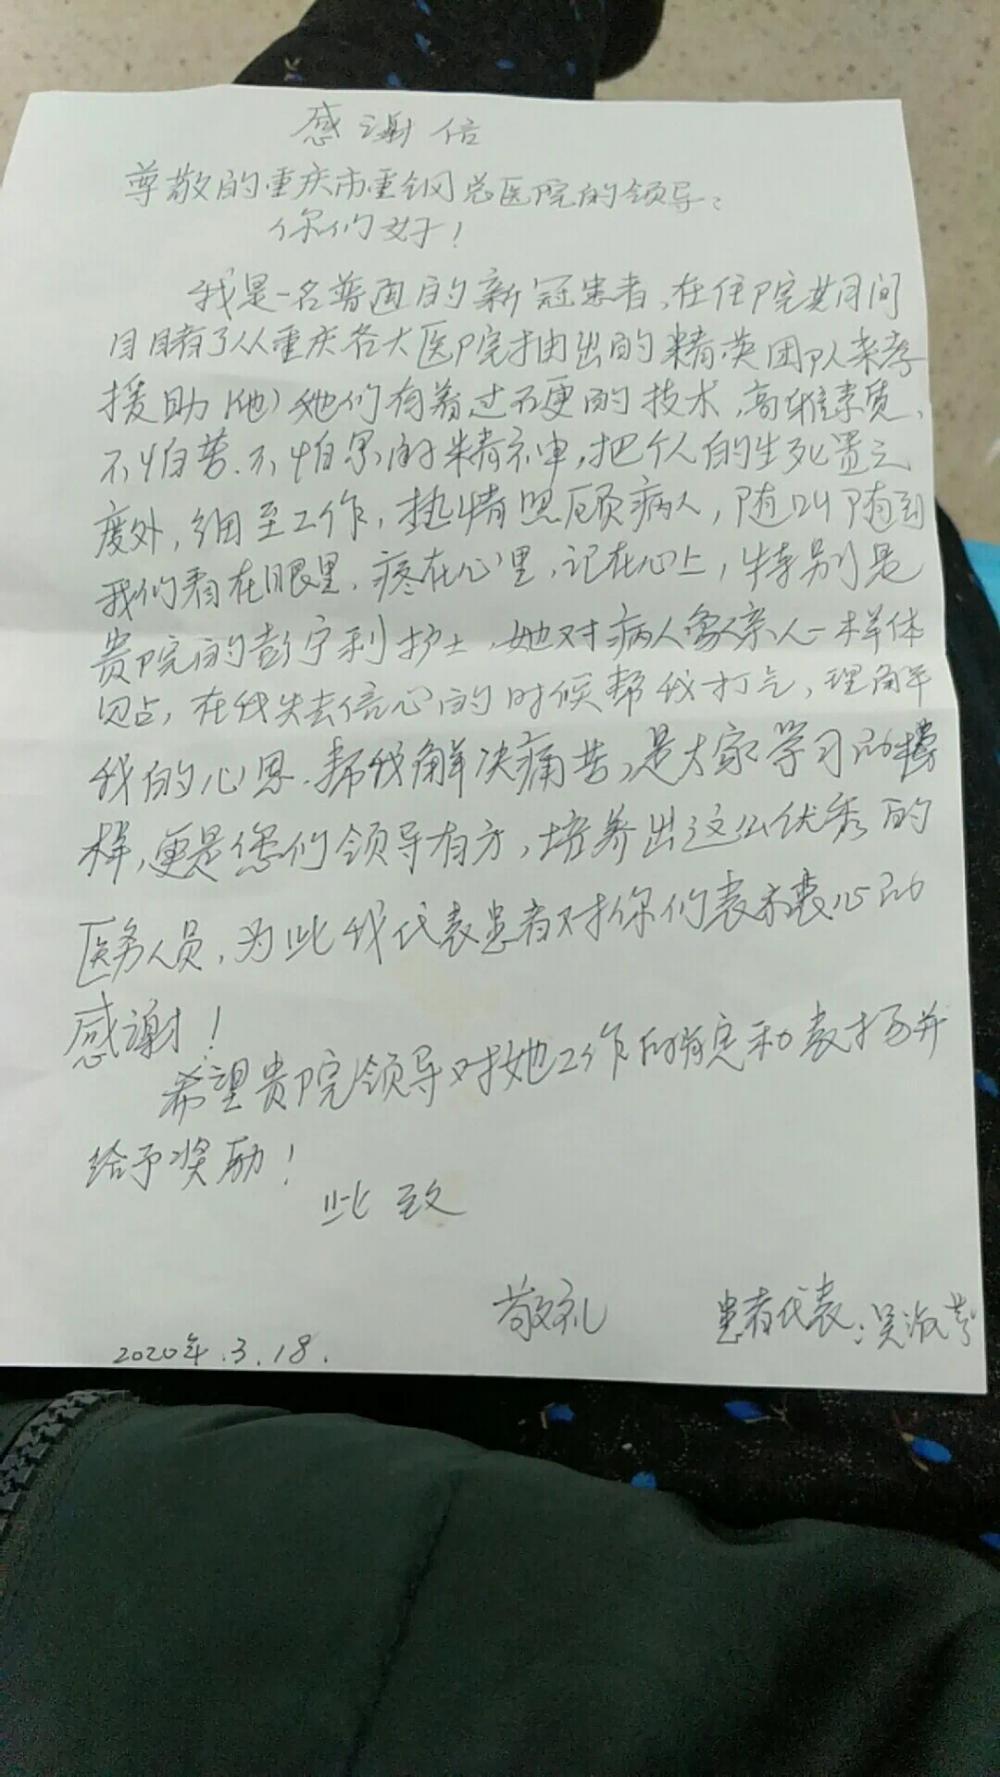 感谢信
尊敬的重庆市重钢总医院的领导：
你们好！
我是一名普通的新冠患者，在住院其间
目睹了从重庆各大医院抽出的精英团队来孝
援助（他）她们有着过硬的技术，高雅素质，
不怕苦、不怕累的精神，把个人的生死置之
度外，细至工作，热情照顾病人，随叫随到
我们看在眼里，疼在心里，记在心上，特别是
贵院的彭宁利护士，她对病人象亲人一样体
贴，在我失去信心的时候帮我打气，理解
我的心思，帮我解决痛苦，是大家学习的榜
样，更是您们领导有方，培养出这么优秀的
医务人员，为此我代表患者对你们表示衷心的
感谢！
希望贵院领导对她工作的肯定和表扬并
给予奖励！
此致
敬礼 患者代表：吴
2020年.3.18.